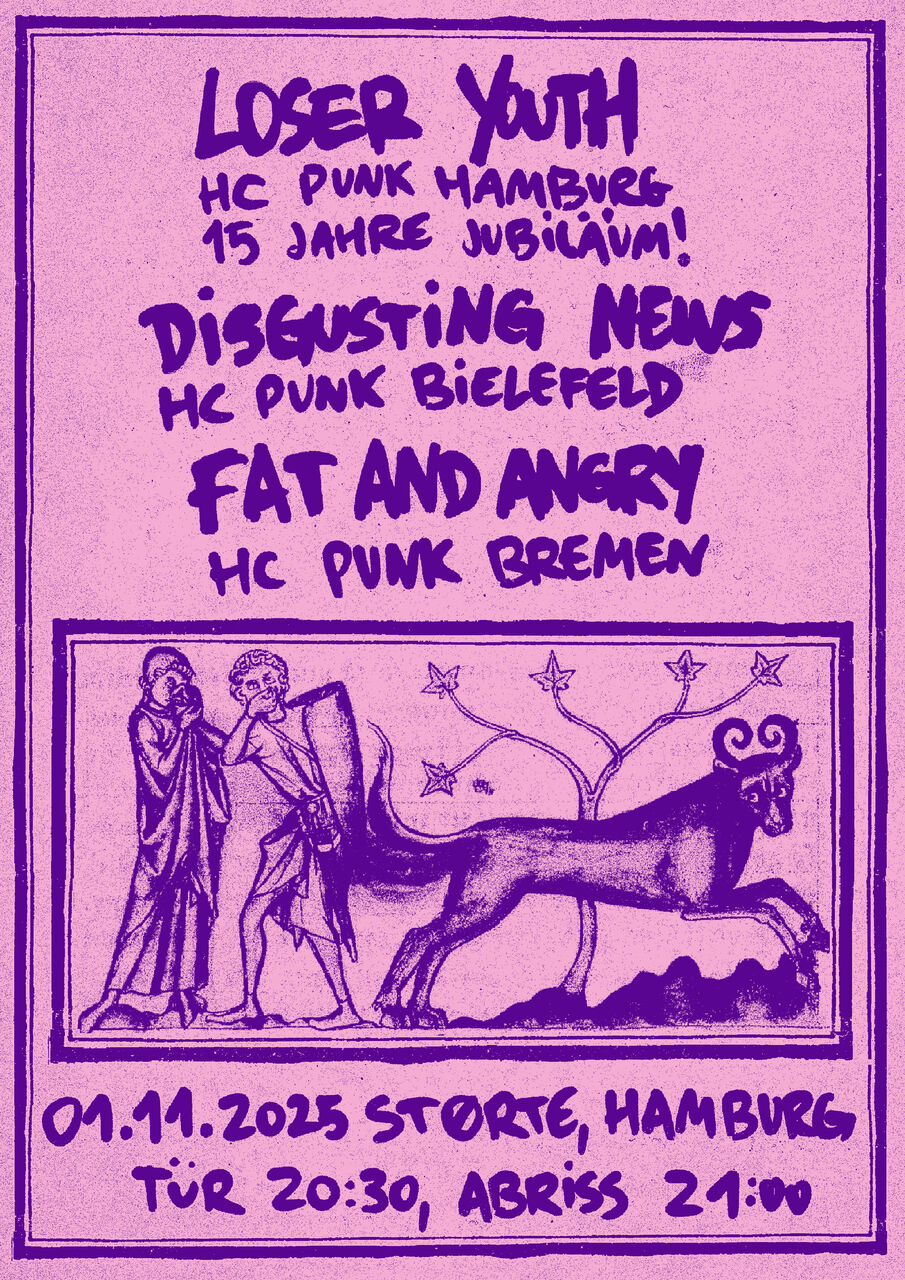 LOSER YOUTH
HC PUNK HAMBURG
15 JAHRE JUBiLÄUM!
DiSGUSTiNG NEWS
HC PUNK BiELEFELD
FAT AND ANGRY
HC PUNK BREMEN
01.11.2025 STØRTE, HAMBURG
TÜR 20:30, ABRiSS 21:00